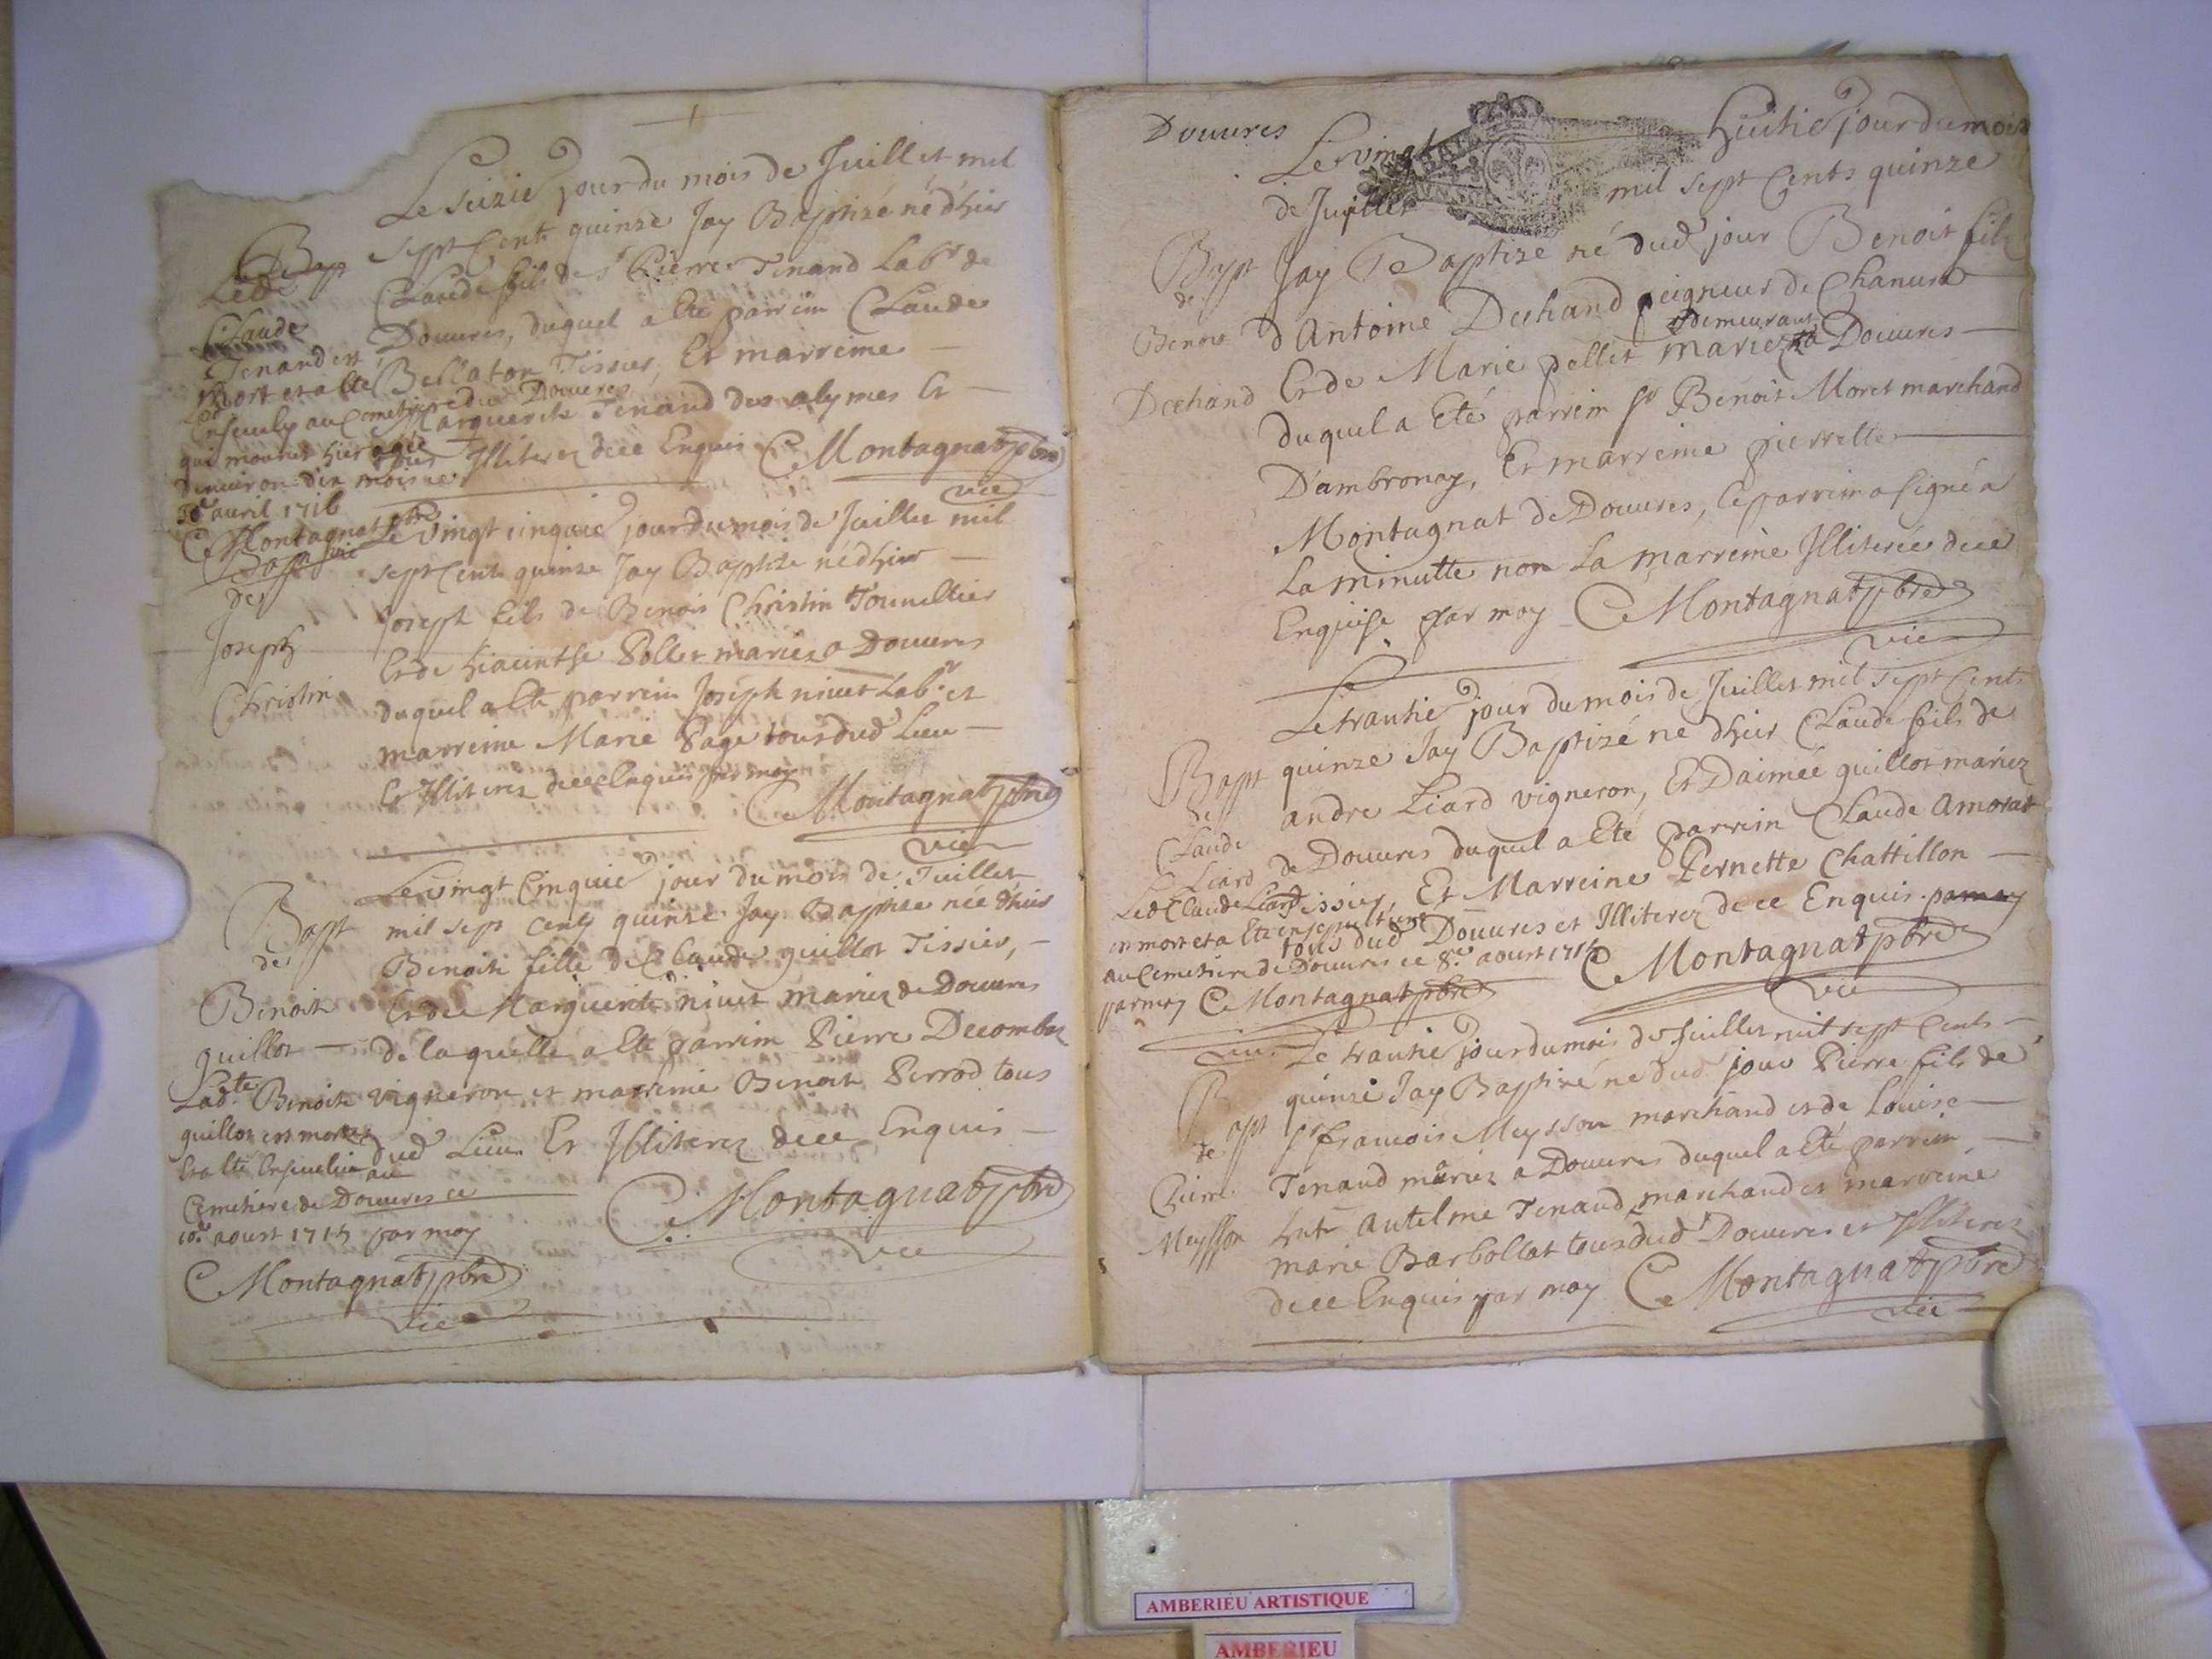 Le seizie jour du mois de Juillet mil
sept Cents quinze Jay Baptizé né d'hier
Claude fils de sr Pierre Tenand Labr de
Douures, duquel a Eté parrein Claude
Bellaton Tissier, Et marreine
Marguerite Tenand des alymes Et
tous Illiterez dece Enquis C Montagnat pbre
vic
Bap
Claude
Tenand est
mort et a eté
Enseuely au Cemetiere du Douures
qui mourut hier agé
denuiron dix mois
avril 1716
C Montagnat pbre
vic
Le vingt cinquie jour du mois de Juillet mil
sept Cents quinze Jay Baptizé né d'hier
Joseph fils de Benoit Christin Tonnellier
Et de hiacinthe Pollet mariez a Douures
duquel a Eté parrein Joseph niuet Labr et
marreine Marie Page tous dud Lieu
Et Illiterez dece Enquis par moy
C Montagnat pbre
vic
Bapt
de
Joseph
Christin
Le vingt Cinquie jour du mois de Juillet
mil sept Cents quinze Jay Baptizé née d'hier
Benoite fille de Claude guillot Tissier,
Et de Marguerite niuet mariez de Douures
de laquelle a Eté parrein Pierre Decombe
vigneron et marreine Benoite Perrod tous
dud Lieu Et Illiterez dece Enquis
C Montagnat pbre
vic
Bapt
de
Benoite
guillot
Ladte Benoite
guillot est morte
Et a Eté Enseuelie au
Cemetiere de Douures ce
10e aoust 1715 par moy
C Montagnat pbre
vic
Douures
Le vingt huitie jour du mois
de Juillet mil sept Cents quinze
Jay Baptizé né dud jour Benoit fils
d'Antoine Dechand peigneur de Chanure
Et de Marie pellet mariez demeurant a Douures
duquel a Eté parrein sr Benoit Moret marchand
D'ambronay, Et marreine pierrette
Montagnat de Douures, le parrein a signé a
La minutte non La marreine Illiterée dece
Enquise par moy C Montagnat pbre
vic
Bapt
de
Benoit
Dechand
Le trantie jour du mois de Juillet mil sept Cents
quinze Jay Baptizé né d'hier Claude fils de
andre Liard vigneron, Et D'aimée guillot mariez
de Douures duquel a Eté parrein Claude Amorat
Tissier, Et Marreine Pernette Chattillon
tous dud Douures et Illiterez dece Enquis par moy
C Montagnat pbre
vic
Bapt
de
Claude
Liard
Led Claude Liard
est mort et a Eté ensepulturé
au Cemetiere de Douures ce 8e aoust 1715
par moy C Montagnat pbre
vic
Le trantie jour du mois de Juillet mil sept Cents
quinze Jay Baptizé né dud jour Pierre fils de
sr francois Meysson marchand et de Louise
Tenand mariez a Douures duquel a Eté parrein
Antelme Tenaud marchand et marreine
marie Barbollat tous dud Douures et Illiterez
dece Enquis par moy C Montagnat pbre
vic
Bapt
de
Pierre
Meysson
AMBERIEU ARTISTIQUE
AMBERIEU